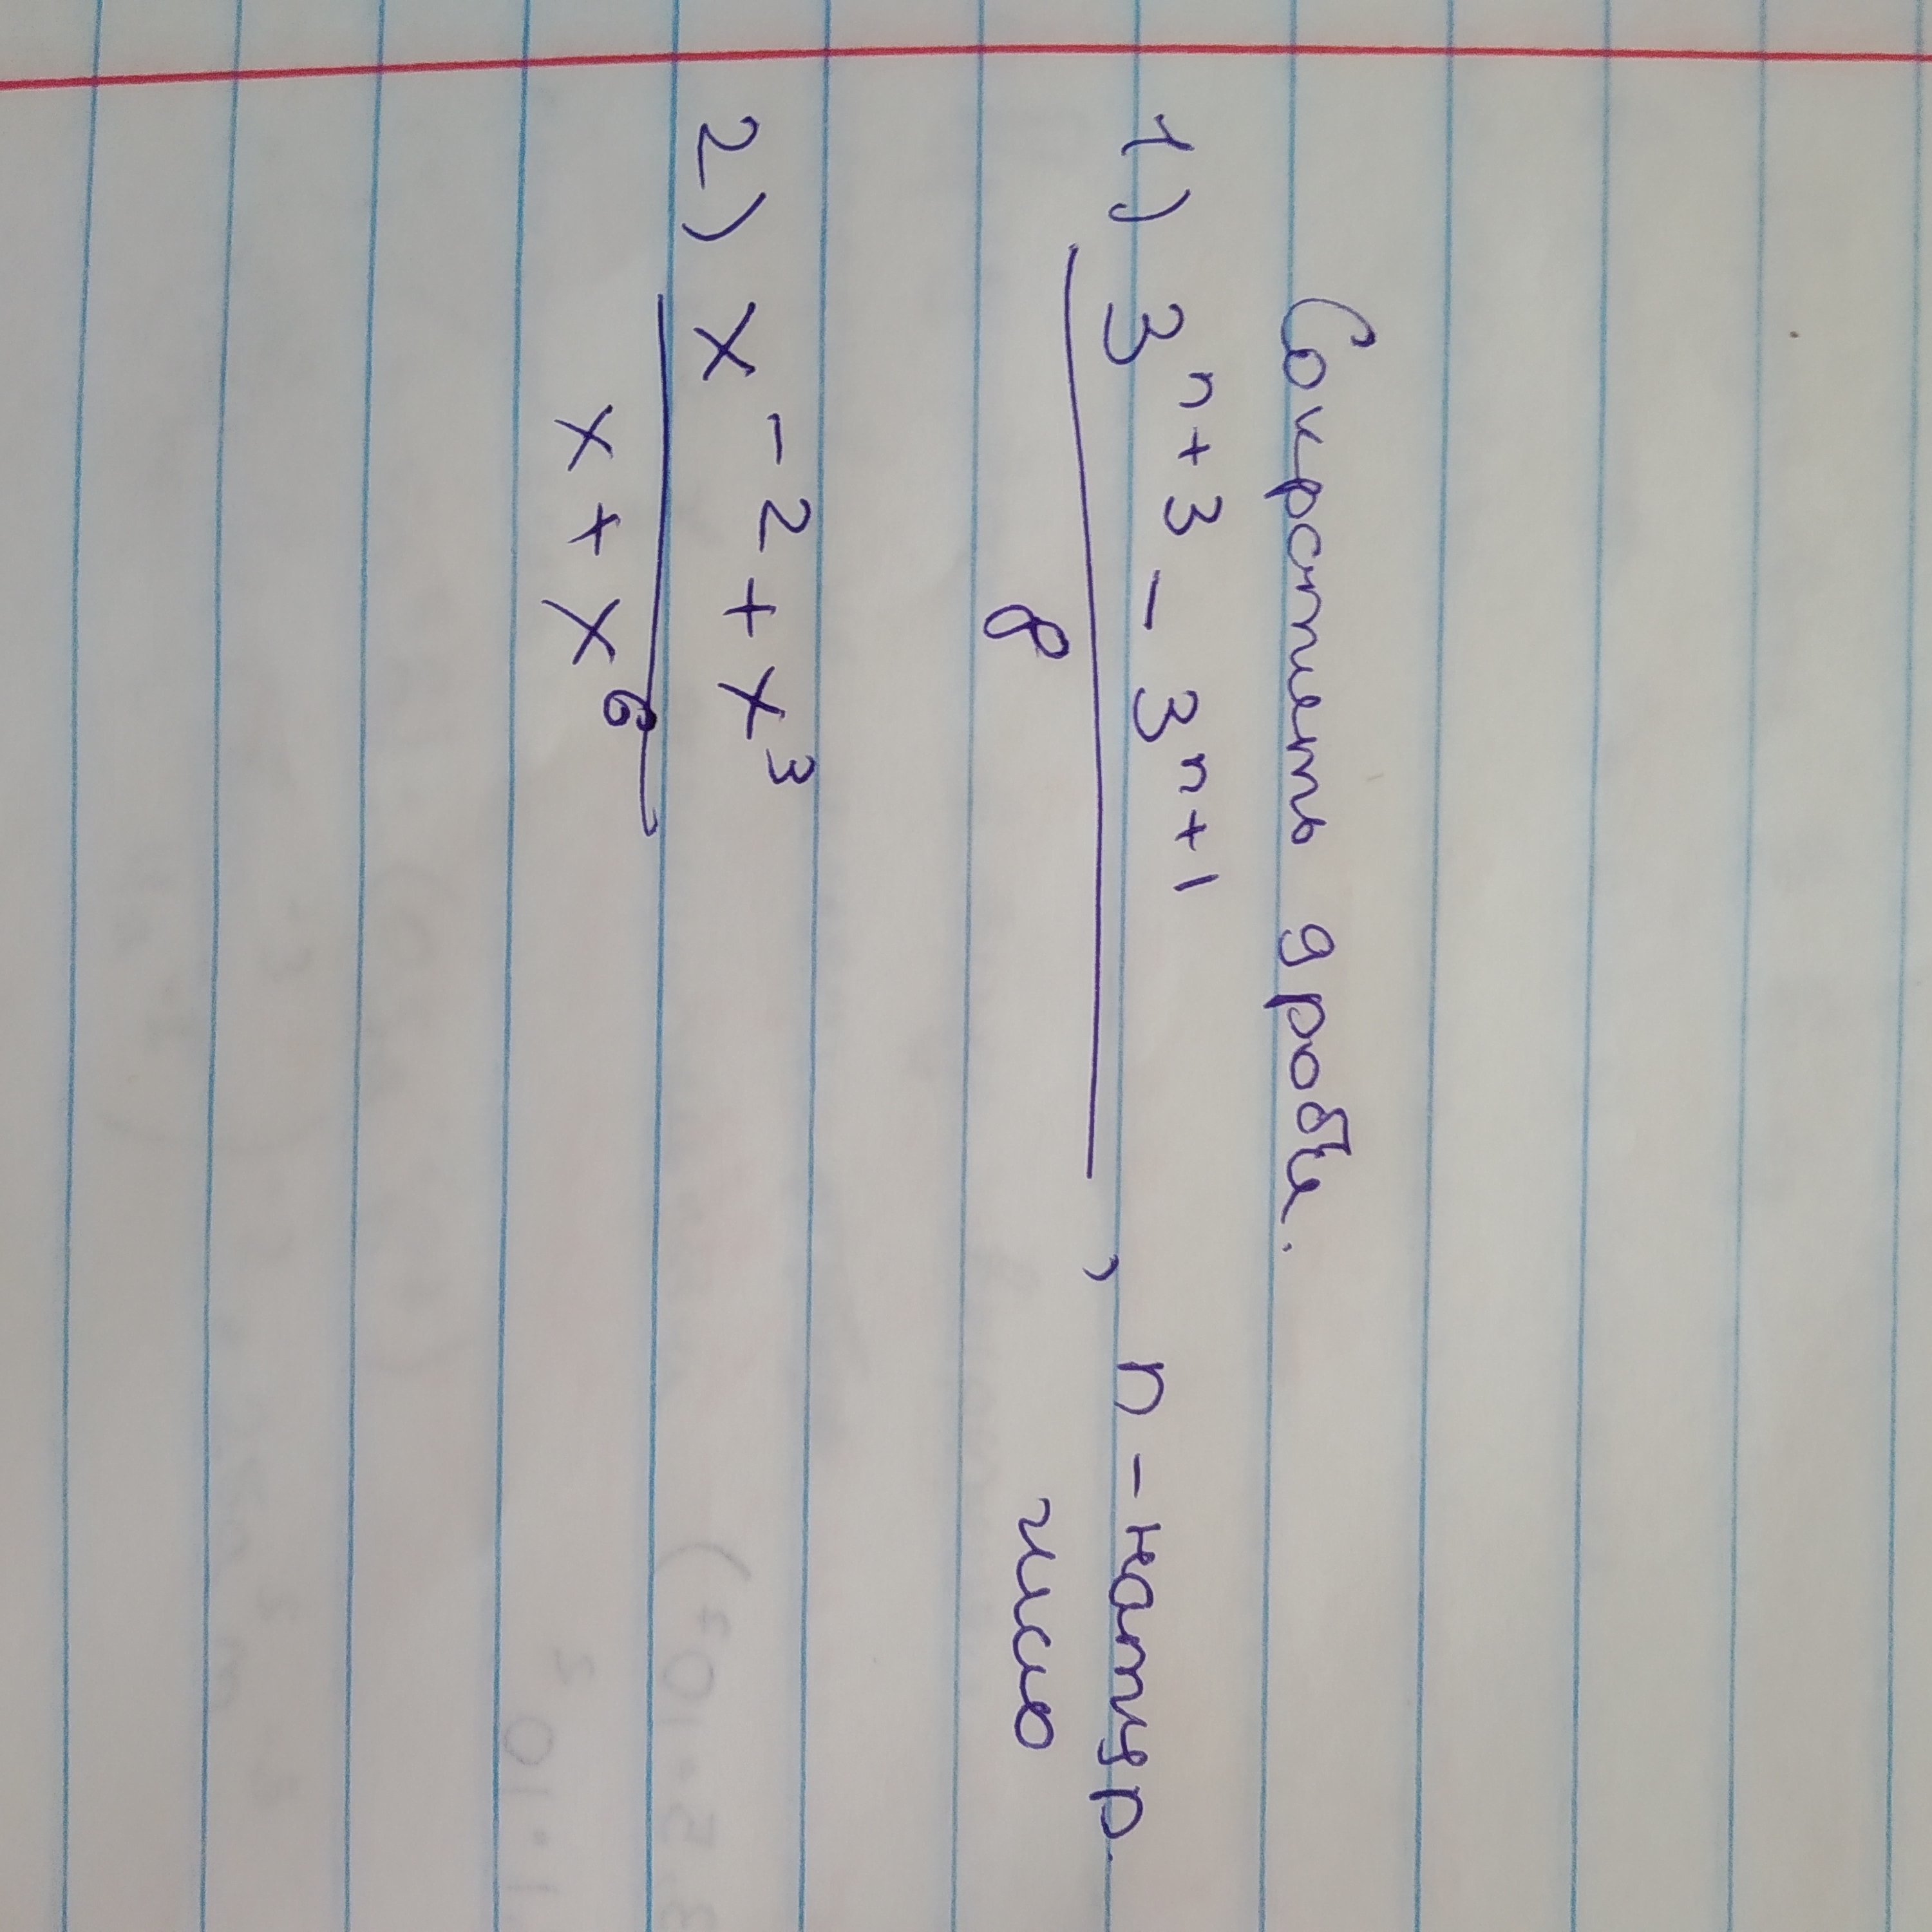 Сократить дроби.
1) 3^{n+3} - 3^{n+1}
8
, n - натур.
число
2) x^{-2} + x^3
x + x^6